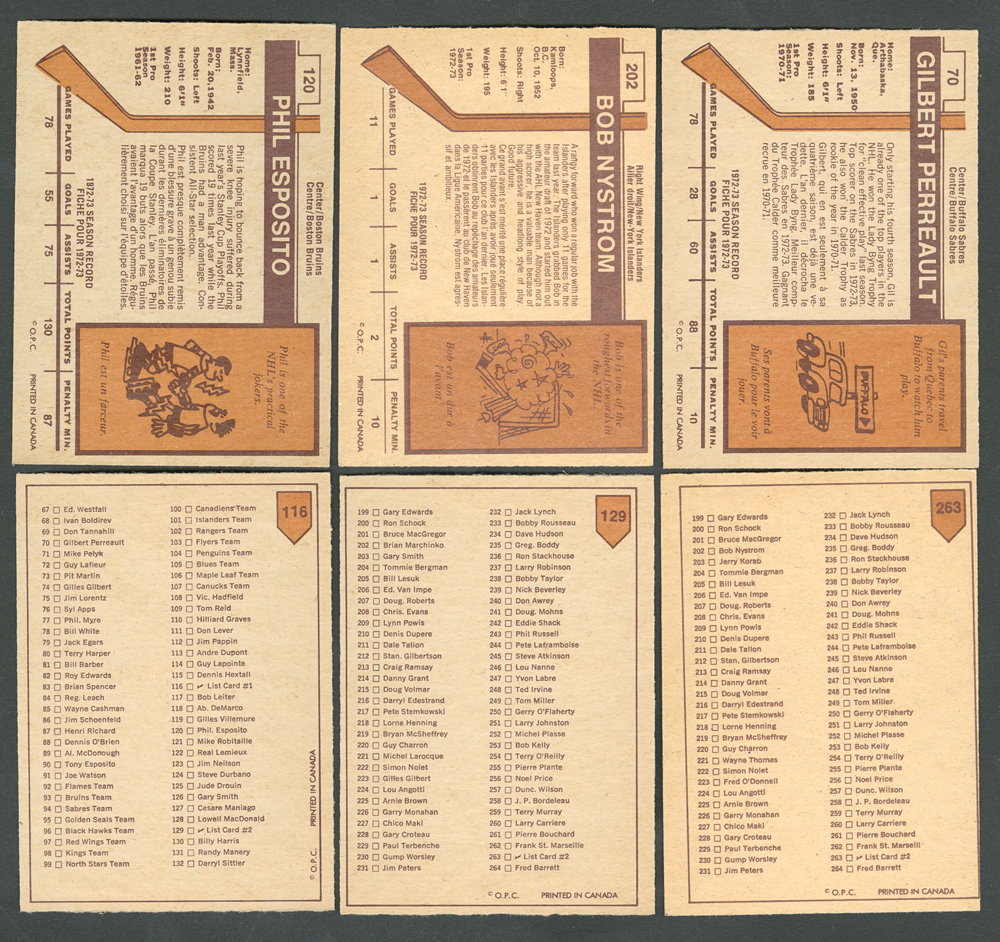 120
PHIL ESPOSITO
Center/Boston Bruins
Centre/Boston Bruins
Home:
Lynnfield,
Mass.
Born:
Feb. 20, 1942
Shoots: Left
Height: 6'1"
Weight: 210
1st Pro
Season
1961-62
Phil is hoping to bounce back from a
severe knee injury suffered during
last year's Stanley Cup Playoffs. Phil
scored 19 times last year while the
Bruins had a man advantage. Con-
sistent All-Star selection.
Phil est presque complètement remis
d'une blessure grave à un genou subie
durant les dernières éliminatoires de
la Coupe Stanley. L'an passé, Phil
marqua 19 buts alors que les Bruins
avaient l'avantage d'un homme. Régu-
lièrement choisi sur l'équipe d'étoiles.
1972-73 SEASON RECORD
FICHE POUR 1972-73
GAMES PLAYED GOALS ASSISTS TOTAL POINTS PENALTY MIN.
78 55 75 130 87
Phil is one of the
NHL's practical
jokers.
Phil est un farceur.
© O.P.C. PRINTED IN CANADA
202
BOB NYSTROM
Right Wing/New York Islanders
Ailier droit/New-York Islanders
Born:
Kamloops,
B.C.
Oct. 10, 1952
Shoots: Right
Height: 6'1"
Weight: 195
1st Pro
Season:
1972-73
A rangy forward who won a regular job with
Islanders after playing only 11 games for the
team last year. The Islanders grabbed Bob in
the amateur draft of 1972 and started him out
with the AHL New Haven team. Although not a
high scorer, he is a valuable man because of
his aggressive, hard-nosed style of play.
Good future.
Ce grand avant s'est mérité une place régulière
avec les Islanders après avoir joué seulement
11 parties pour ce club l'an dernier. Les Islan-
ders obtinrent Bob au repêchage des amateurs
de 1972 et le passèrent au club de New Haven
dans la Ligue Américaine. Nystrom est agres-
sif et ambitieux.
1972-73 SEASON RECORD
FICHE POUR 1972-73
GAMES PLAYED GOALS ASSISTS TOTAL POINTS PENALTY MIN.
11 1 1 2 10
Bob is one of the
roughest forwards in
the NHL.
Bob est un dur à
l'avant.
© O.P.C. PRINTED IN CANADA
70
GILBERT PERREAULT
Center/Buffalo Sabres
Centre/Buffalo Sabres
Home:
Arthabaska,
Que.
Born:
Nov. 13, 1950
Shoots: Left
Height: 6'1"
Weight: 185
1st Pro
Season:
1970-71
Only starting his fourth season, Gil is
already one of the top players in the
NHL. He won the Lady Byng Trophy
for "clean effective play" last season.
Top scorer on the Sabres in 1972-73,
he also won the Calder Trophy as
rookie of the year in 1970-71.
Gilbert, qui en est seulement à sa
quatrième saison, est déjà une ve-
dette. L'an dernier, il décrocha le
Trophée Lady Byng. Meilleur comp-
teur des Sabres en 1972-73. Gagnant
du Trophée Calder comme meilleure
recrue en 1970-71.
1972-73 SEASON RECORD
FICHE POUR 1972-73
GAMES PLAYED GOALS ASSISTS TOTAL POINTS PENALTY MIN.
78 28 60 88 10
Gil's parents travel
from Quebec to
Buffalo to watch him
play.
BUFFALO
Ses parents vont à
Buffalo pour le voir
jouer.
© O.P.C. PRINTED IN CANADA
116
67 Ed. Westfall
68 Ivan Boldirev
69 Don Tannahill
70 Gilbert Perreault
71 Mike Pelyk
72 Guy Lafleur
73 Pit Martin
74 Gilles Gilbert
75 Jim Lorentz
76 Syl Apps
77 Phil. Myre
78 Bill White
79 Jack Egars
80 Terry Harper
81 Bill Barber
82 Roy Edwards
83 Brian Spencer
84 Reg. Leach
85 Wayne Cashman
86 Jim Schoenfeld
87 Henri Richard
88 Dennis O'Brien
89 Al. McDonough
90 Tony Esposito
91 Joe Watson
92 Flames Team
93 Bruins Team
94 Sabres Team
95 Golden Seals Team
96 Black Hawks Team
97 Red Wings Team
98 Kings Team
99 North Stars Team
100 Canadiens Team
101 Islanders Team
102 Rangers Team
103 Flyers Team
104 Penguins Team
105 Blues Team
106 Maple Leaf Team
107 Canucks Team
108 Vic. Hadfield
109 Tom Reid
110 Hilliard Graves
111 Don Lever
112 Jim Pappin
113 Andre Dupont
114 Guy Lapointe
115 Dennis Hextall
116 List Card #1
117 Bob Leiter
118 Ab. DeMarco
119 Gilles Villemure
120 Phil. Esposito
121 Mike Robitaille
122 Real Lemieux
123 Jim Neilson
124 Steve Durbano
125 Jude Drouin
126 Gary Smith
127 Cesare Maniago
128 Lowell MacDonald
129 List Card #2
130 Billy Harris
131 Randy Manery
132 Darryl Sittler
© O.P.C. PRINTED IN CANADA
129
199 Gary Edwards
200 Ron Schock
201 Bruce MacGregor
202 Brian Marchinko
203 Gary Smith
204 Tommie Bergman
205 Bill Lesuk
206 Ed. Van Impe
207 Doug. Roberts
208 Chris. Evans
209 Lynn Powis
210 Denis Dupere
211 Dale Tallon
212 Stan. Gilbertson
213 Craig Ramsay
214 Danny Grant
215 Doug Volmar
216 Darryl Edestrand
217 Pete Stemkowski
218 Lorne Henning
219 Bryan McSheffrey
220 Guy Charron
221 Michel Larocque
222 Simon Nolet
223 Gilles Gilbert
224 Lou Angotti
225 Arnie Brown
226 Garry Monahan
227 Chico Maki
228 Gary Croteau
229 Paul Terbenche
230 Gump Worsley
231 Jim Peters
232 Jack Lynch
233 Bobby Rousseau
234 Dave Hudson
235 Greg. Boddy
236 Ron Stackhouse
237 Larry Robinson
238 Bobby Taylor
239 Nick Beverley
240 Don Awrey
241 Doug. Mohns
242 Eddie Shack
243 Phil Russell
244 Pete Laframboise
245 Steve Atkinson
246 Lou Nanne
247 Yvon Labre
248 Ted Irvine
249 Tom Miller
250 Gerry O'Flaherty
251 Larry Johnston
252 Michel Plasse
253 Bob Kelly
254 Terry O'Reilly
255 Pierre Plante
256 Noel Price
257 Dunc. Wilson
258 J. P. Bordeleau
259 Terry Murray
260 Larry Carriere
261 Pierre Bouchard
262 Frank St. Marseille
263 List Card #2
264 Fred Barrett
© O.P.C. PRINTED IN CANADA
263
199 Gary Edwards
200 Ron Schock
201 Bruce MacGregor
202 Bob Nystrom
203 Jerry Korab
204 Tommie Bergman
205 Bill Lesuk
206 Ed. Van Impe
207 Doug. Roberts
208 Chris. Evans
209 Lynn Powis
210 Denis Dupere
211 Dale Tallon
212 Stan. Gilbertson
213 Craig Ramsay
214 Danny Grant
215 Doug Volmar
216 Darryl Edestrand
217 Pete Stemkowski
218 Lorne Henning
219 Bryan McSheffrey
220 Guy Charron
221 Wayne Thomas
222 Simon Nolet
223 Fred O'Donnell
224 Lou Angotti
225 Arnie Brown
226 Garry Monahan
227 Chico Maki
228 Gary Croteau
229 Paul Terbenche
230 Gump Worsley
231 Jim Peters
232 Jack Lynch
233 Bobby Rousseau
234 Dave Hudson
235 Greg. Boddy
236 Ron Stackhouse
237 Larry Robinson
238 Bobby Taylor
239 Nick Beverley
240 Don Awrey
241 Doug. Mohns
242 Eddie Shack
243 Phil Russell
244 Pete Laframboise
245 Steve Atkinson
246 Lou Nanne
247 Yvon Labre
248 Ted Irvine
249 Tom Miller
250 Gerry O'Flaherty
251 Larry Johnston
252 Michel Plasse
253 Bob Kelly
254 Terry O'Reilly
255 Pierre Plante
256 Noel Price
257 Dunc. Wilson
258 J. P. Bordeleau
259 Terry Murray
260 Larry Carriere
261 Pierre Bouchard
262 Frank St. Marseill
263 List Card #2
264 Fred Barrett
© O.P.C. PRINTED IN CANADA